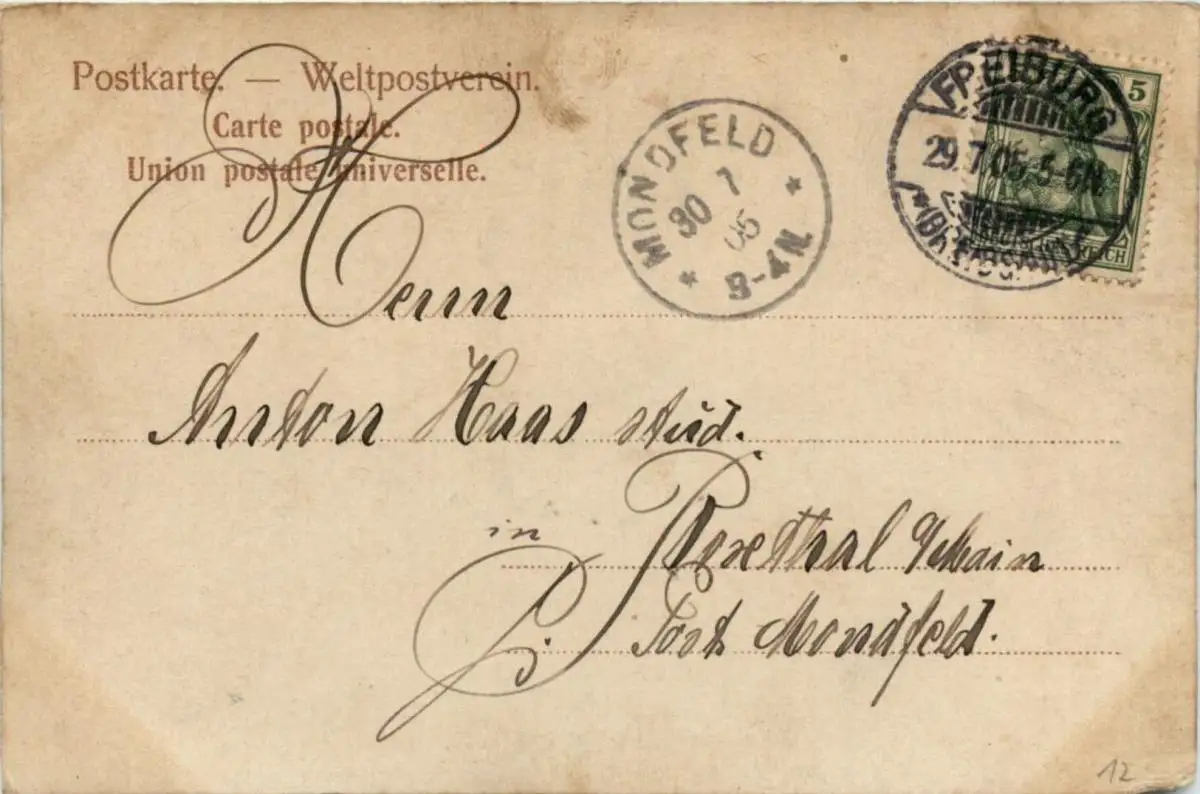 Postkarte. — Weltpostverein.
Carte postale.
Union postale universelle.
MONDFELD
30 7 05
3-4N.
FREIBURG
29.7.05.5-6N
*(BREISGAU)
5
REICH
Herrn
Anton Haas stud.
in
Rosenthal a/Main
Post Mondfeld.
12